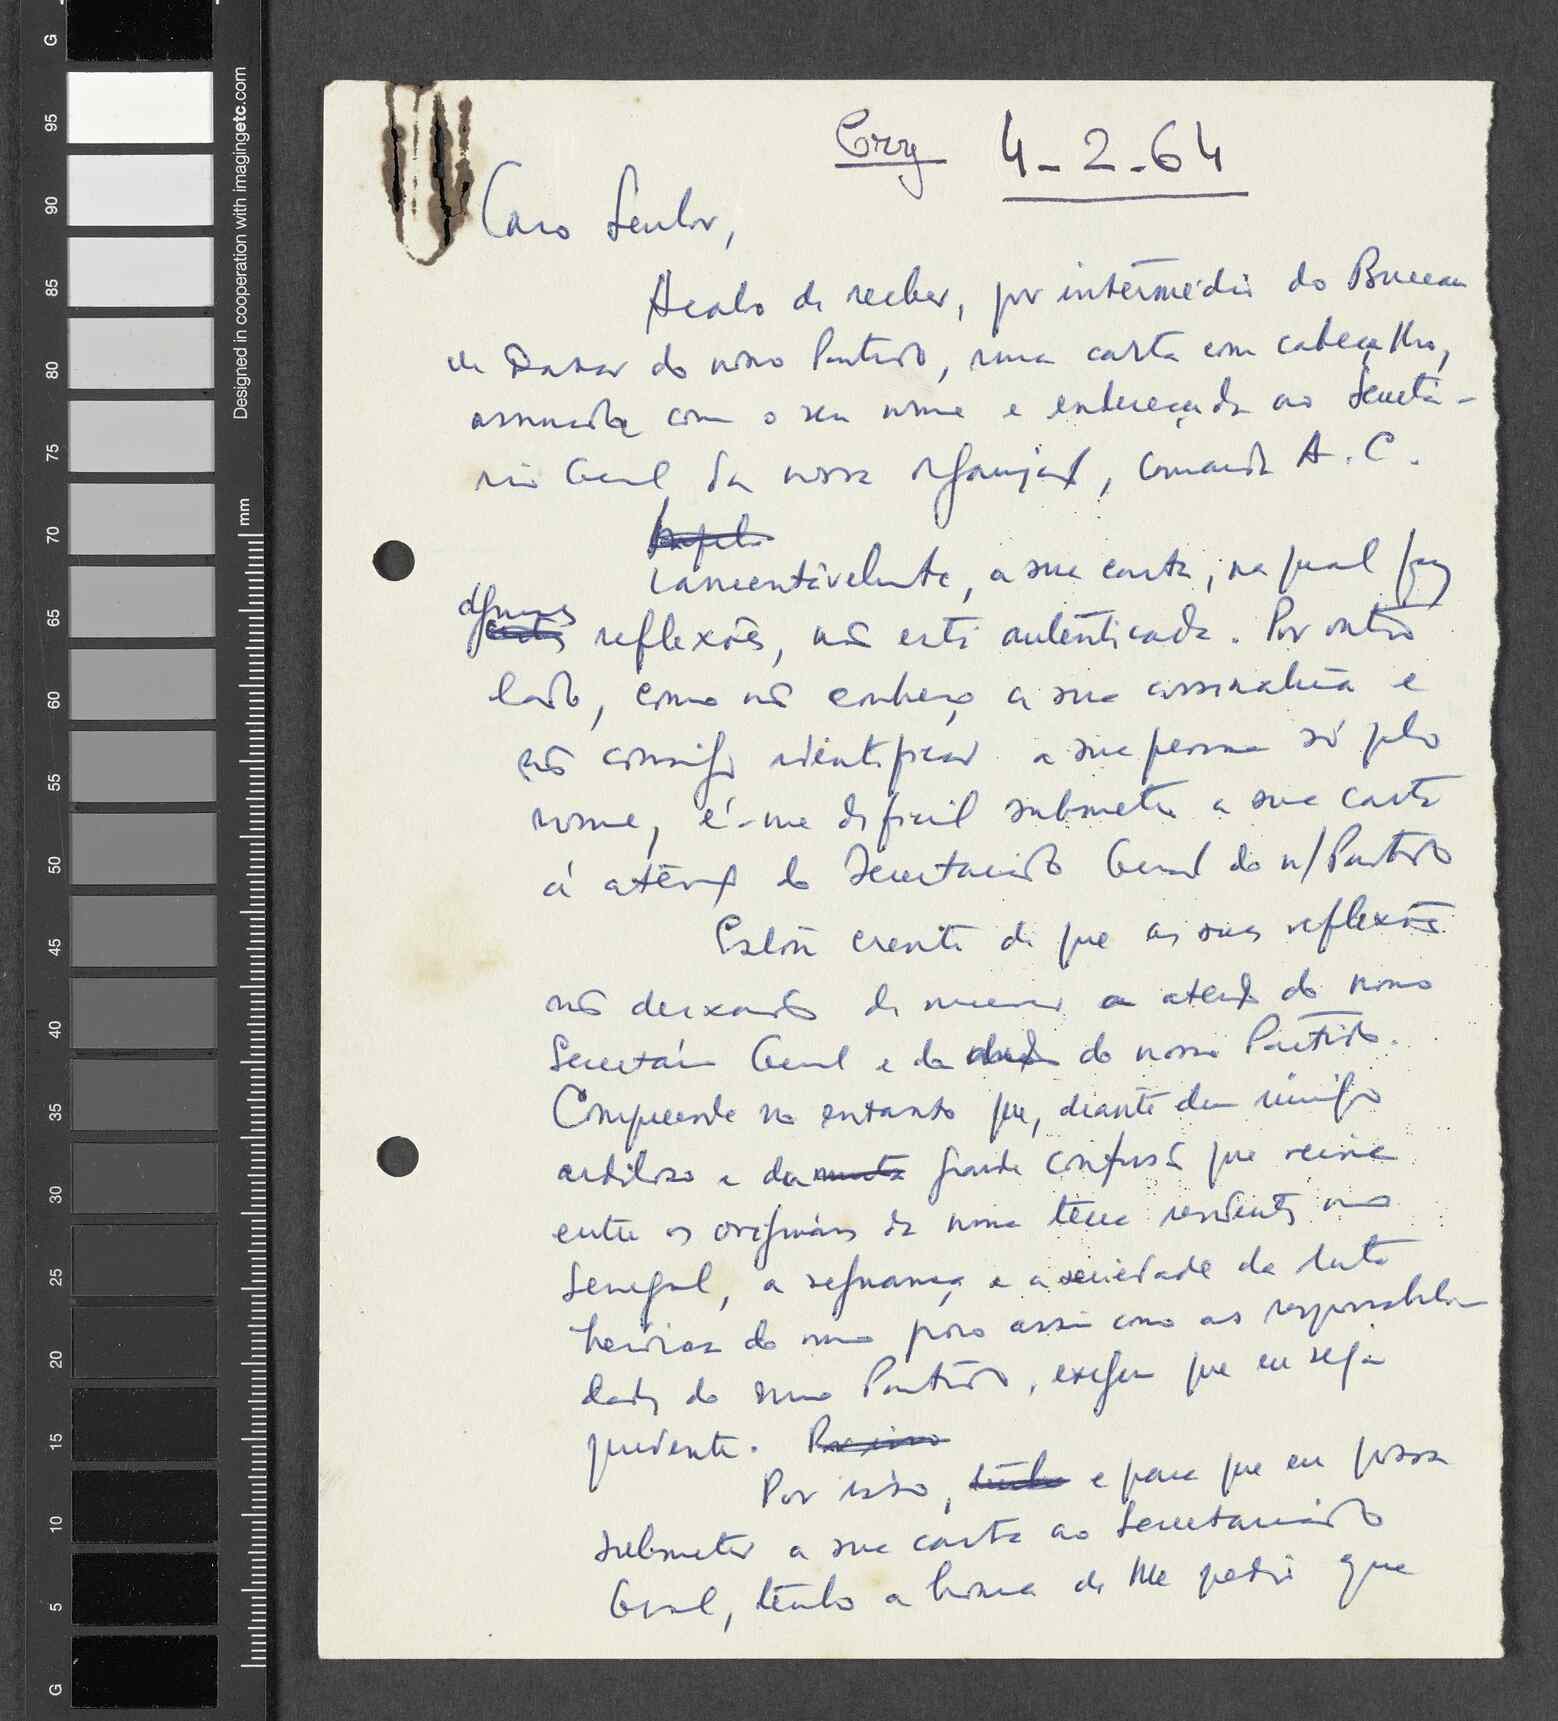 G
95
90
85
80
75
70
65
60
55
50
45
40
35
30
25
20
15
10
5
G
mm
Designed in cooperation with imagingetc.com
4-2-64
Caro Senhor,
Acabo de receber, por intermédio do Bureau
de Dakar do nosso Partido, uma carta com cabeçalho,
assinada com o seu nome e endereçada ao Secretá-
rio Geral da nossa organização, Camarada A.C.
Lamentàvelmente, a sua carta, na qual faz
algumas
reflexões, não está autênticada. Por outro
lado, como não conheço a sua assinatura e
não consigo identificar a sua pessoa só pelo
nome, é-me dificil submeter a sua carta
á atenção do Secretariado Geral do n/Partido
Estou crente de que as suas reflexões
não deixarão de merecer a atenção do nosso
Secretário Geral e da do nosso Partido.
Compreende no entanto que, diante dum inimigo
ardiloso e da grande confusão que reina
entre os originários da nossa terra residentes no
Senegal, a segurança e a seriedade da luta
heróica do nosso povo assim como as responsabili-
dades do nosso Partido, exigem que eu seja
prudente. Por isso
Por isso, e para que eu possa
submeter a sua carta ao Secretariado
Geral, tenho a honra de lhe pedir que